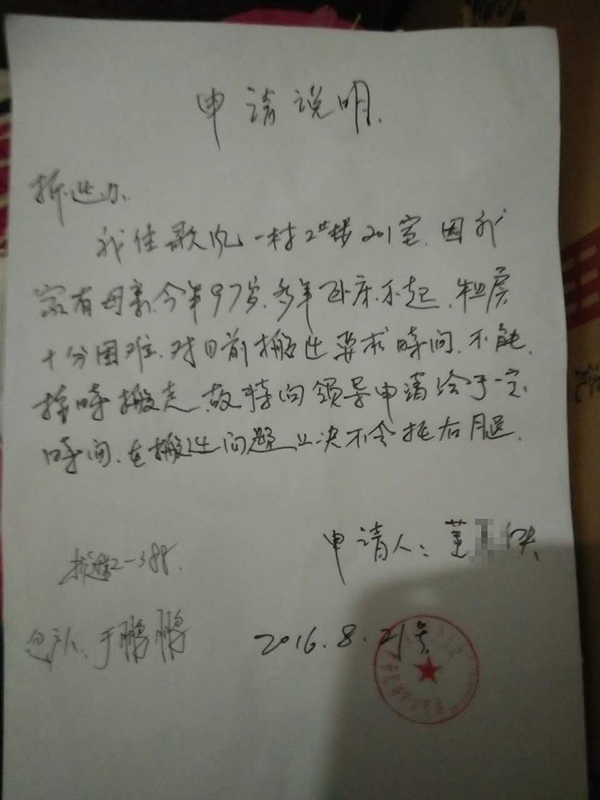 申请说明.
拆迁办.
我住歌风一村2#楼201室.因我
家有母亲今年97岁.多年卧床不起.租房
十分困难.对目前搬迁要求時间.不能
按時搬走.故特向领导申请给予一定
時间.在搬迁问题上决不会拖右腿.
申请人:董 侠
2-388.
于鹏鹏
2016.8.21号